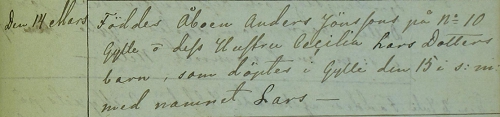 Den 14 Mars Föddes Åboen Anders Jönssons på No 10
Gylle o dess Hustru Cecilia Lars Dotters
barn, som döptes i Gylle den 15 i s: m:
med namnet Lars —